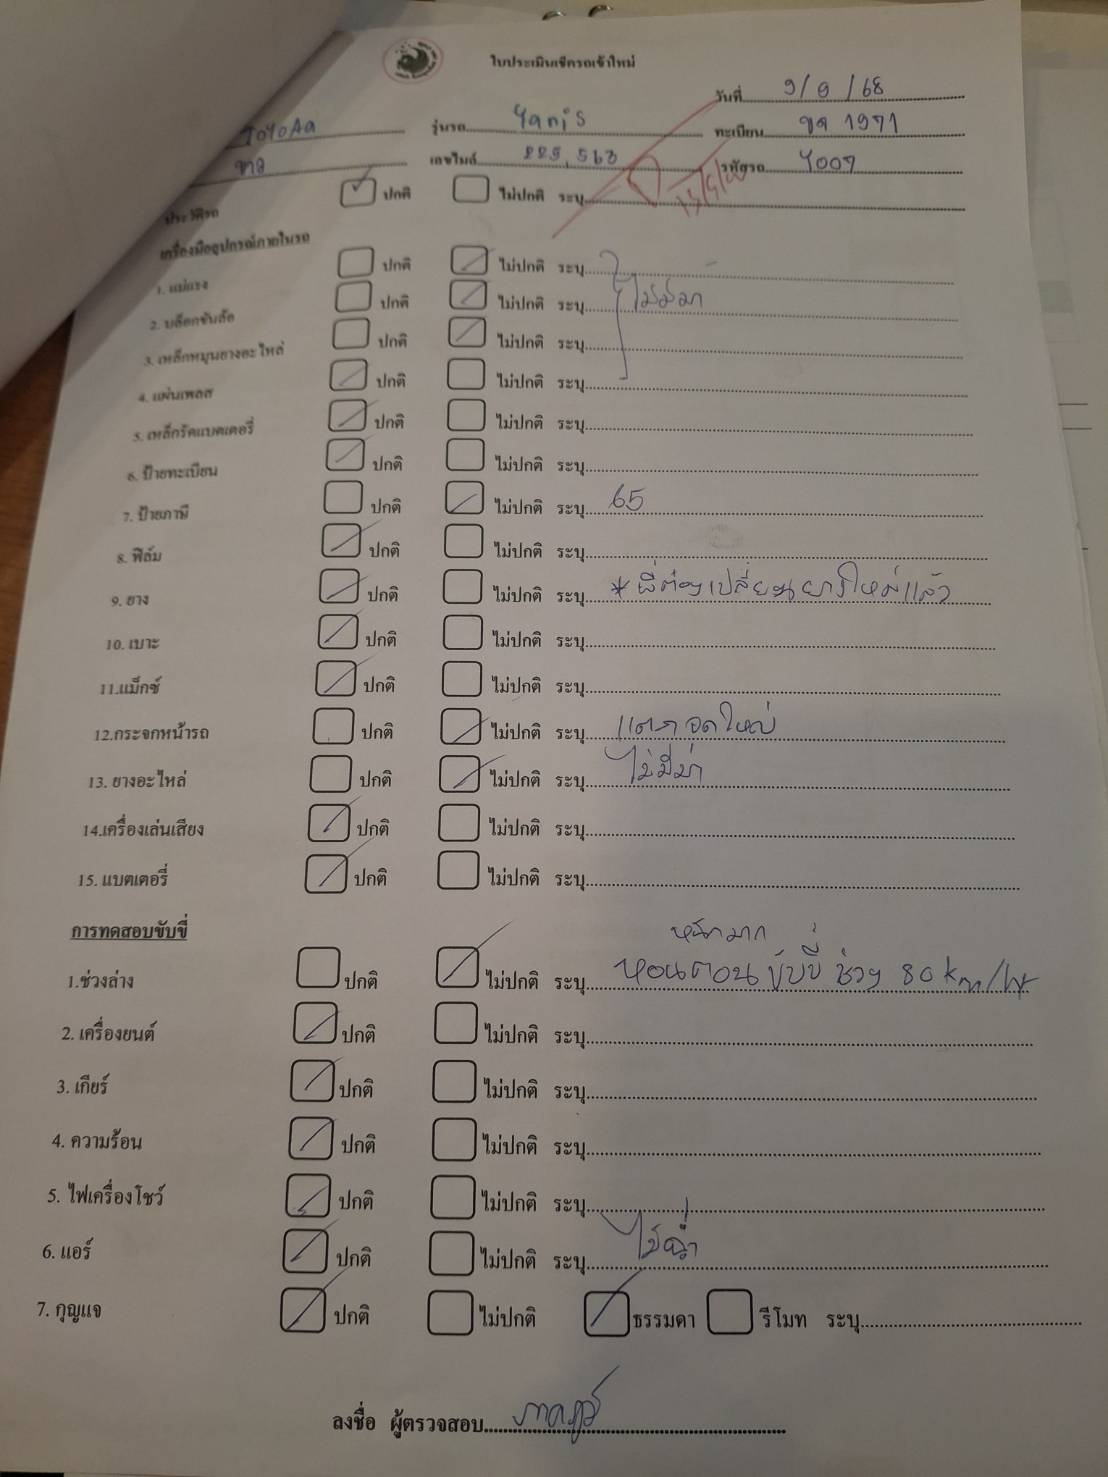 ใบประเมินเช็ครถเข้าใหม่
วันที่ 9/9/68
รุ่นรถ Yaris ทะเบียน 1971
เลขไมล์ 225,563 รหัสรถ Y007
ประวัติรถ ปกติ ไม่ปกติ ระบุ
เครื่องมืออุปกรณ์ภายในรถ
1. แม่แรง ปกติ ไม่ปกติ ระบุ
2. บล็อกขันล้อ ปกติ ไม่ปกติ ระบุ ไม่มีมา
3. เหล็กหมุนยางอะไหล่ ปกติ ไม่ปกติ ระบุ
4. แผ่นเพลส ปกติ ไม่ปกติ ระบุ
5. เหล็กรัดแบตเตอรี่ ปกติ ไม่ปกติ ระบุ
6. ป้ายทะเบียน ปกติ ไม่ปกติ ระบุ
7. ป้ายภาษี ปกติ ไม่ปกติ ระบุ 65
8. ฟิล์ม ปกติ ไม่ปกติ ระบุ
9. ยาง ปกติ ไม่ปกติ ระบุ * พี่ต๋องเปลี่ยนยางใหม่แล้ว
10. เบาะ ปกติ ไม่ปกติ ระบุ
11.แม็กซ์ ปกติ ไม่ปกติ ระบุ
12.กระจกหน้ารถ ปกติ ไม่ปกติ ระบุ แตกจุดใหญ่
13. ยางอะไหล่ ปกติ ไม่ปกติ ระบุ ไม่มีมา
14.เครื่องเล่นเสียง ปกติ ไม่ปกติ ระบุ
15. แบตเตอรี่ ปกติ ไม่ปกติ ระบุ
การทดสอบขับขี่
หนักมาก
1.ช่วงล่าง ปกติ ไม่ปกติ ระบุ หอนตอนขับขี่ ช่วง 80 km/hr
2. เครื่องยนต์ ปกติ ไม่ปกติ ระบุ
3. เกียร์ ปกติ ไม่ปกติ ระบุ
4. ความร้อน ปกติ ไม่ปกติ ระบุ
5. ไฟเครื่องโชว์ ปกติ ไม่ปกติ ระบุ
6. แอร์ ปกติ ไม่ปกติ ระบุ ไม่ฉ่ำ
7. กุญแจ ปกติ ไม่ปกติ ธรรมดา รีโมท ระบุ
ลงชื่อ ผู้ตรวจสอบ